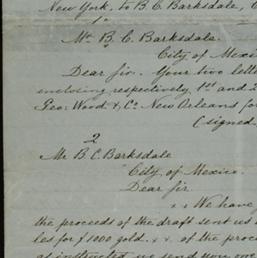 New York, to B C. Barksdale, C
1
Mr B. C. Barksdale.
City of Mexic
Dear sir. Your two lette
enclosing respectively, 1st and 2
Geo: Wood & Co New Orleans for
(signed
2
Mr B. C. Barksdale
City of Mexico.
Dear sir
x x We have
the proceeds of the draft sent us
les for $1000 gold. x x of the proce
as instructed we send you one